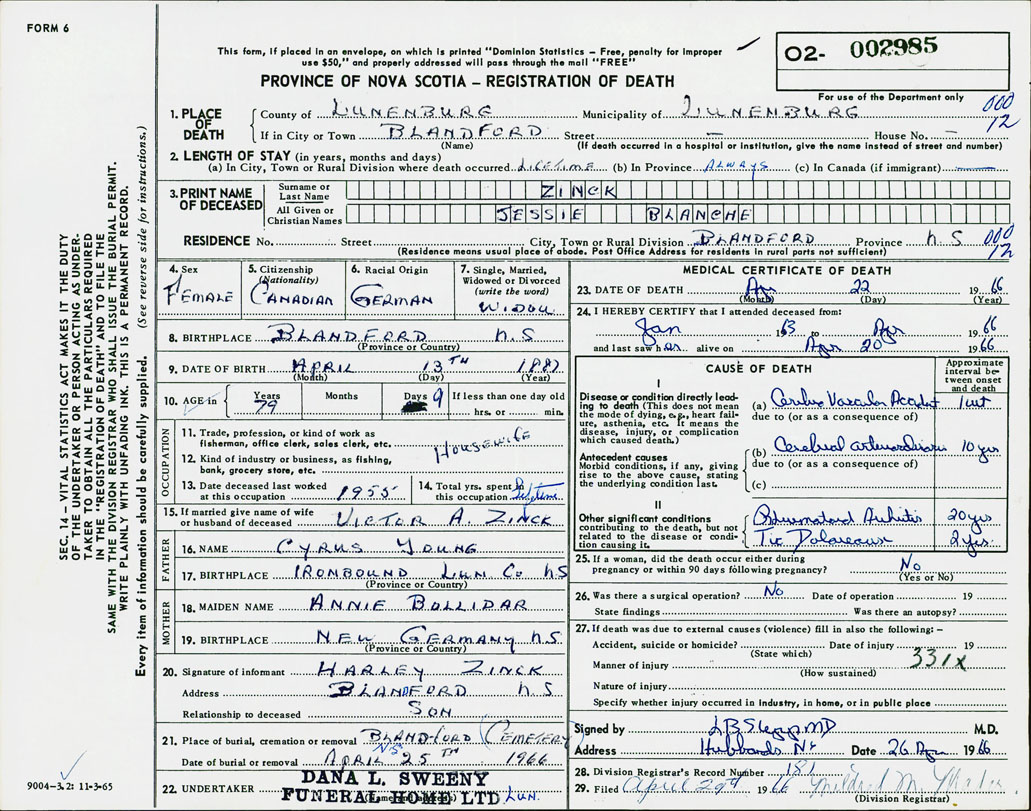 FORM 6
This form, if placed in an envelope, on which is printed "Dominion Statistics – Free, penalty for improper
use $50," and properly addressed will pass through the mail "FREE"
O2- 002985
PROVINCE OF NOVA SCOTIA – REGISTRATION OF DEATH
For use of the Department only
000
12
1. PLACE OF DEATH County of LUNENBURG Municipality of LUNENBURG
If in City or Town BLANDFORD Street — House No. —
(Name) (If death occurred in a hospital or institution, give the name instead of street and number)
2. LENGTH OF STAY (in years, months and days)
(a) In City, Town or Rural Division where death occurred LIFETIME (b) In Province ALWAYS (c) In Canada (if immigrant) —
3. PRINT NAME OF DECEASED Surname or Last Name ZINCK
All Given or Christian Names JESSIE BLANCHE
RESIDENCE No. Street City, Town or Rural Division BLANDFORD Province N.S 000
12
(Residence means usual place of abode. Post Office Address for residents in rural parts not sufficient)
4. Sex FEMALE
5. Citizenship (Nationality) CANADIAN
6. Racial Origin GERMAN
7. Single, Married, Widowed or Divorced (write the word) WIDOW
8. BIRTHPLACE BLANDFORD N.S
(Province or Country)
9. DATE OF BIRTH APRIL 13TH 1887
(Month) (Day) (Year)
10. AGE in Years 79 Months Days 9 If less than one day old
hrs. or min.
OCCUPATION
11. Trade, profession, or kind of work as fisherman, office clerk, sales clerk, etc. HOUSEWIFE
12. Kind of industry or business, as fishing, bank, grocery store, etc.
13. Date deceased last worked at this occupation 1955
14. Total yrs. spent in this occupation Lifetime
15. If married give name of wife or husband of deceased VICTOR A. ZINCK
FATHER
16. NAME CYRUS YOUNG
17. BIRTHPLACE IRONBOUND LUN CO NS
(Province or Country)
MOTHER
18. MAIDEN NAME ANNIE BOLLIDAR
19. BIRTHPLACE NEW GERMANY N.S
(Province or Country)
20. Signature of informant HARLEY ZINCK
Address BLANDFORD N S
Relationship to deceased SON
21. Place of burial, cremation or removal BLANDFORD (CEMETERY)
NS
Date of burial or removal APRIL 25TH 1966
22. UNDERTAKER DANA L. SWEENY
FUNERAL HOME LTD LUN.
(Name and address)
MEDICAL CERTIFICATE OF DEATH
23. DATE OF DEATH Apr 22 1966
(Month) (Day) (Year)
24. I HEREBY CERTIFY that I attended deceased from:
Jan 1963 to Apr 1966
and last saw her alive on Apr 20 1966
CAUSE OF DEATH
Approximate interval between onset and death
I
Disease or condition directly leading to death (This does not mean the mode of dying, e.g., heart failure, asthenia, etc. It means the disease, injury, or complication which caused death.)
(a) Cerebro Vascular Accident
due to (or as a consequence of)
Antecedent causes
Morbid conditions, if any, giving rise to the above cause, stating the underlying condition last.
(b) Cerebral 10 yrs
due to (or as a consequence of)
(c)
II
Other significant conditions contributing to the death, but not related to the disease or condition causing it.
Rheumatoid Arthritis 20 yrs
Tic 2 yrs
25. If a woman, did the death occur either during pregnancy or within 90 days following pregnancy? No
(Yes or No)
26. Was there a surgical operation? No Date of operation 19
State findings Was there an autopsy?
27. If death was due to external causes (violence) fill in also the following: –
Accident, suicide or homicide? Date of injury 19
(State which)
Manner of injury 331x
(How sustained)
Nature of injury
Specify whether injury occurred in industry, in home, or in public place
Signed by MD M.D.
Address Hubbards NS Date 26 Apr 1966
28. Division Registrar's Record Number 181
29. Filed April 29th 1966 Mildred M.
(Division Registrar)
SEC. 14 – VITAL STATISTICS ACT MAKES IT THE DUTY
OF THE UNDERTAKER OR PERSON ACTING AS UNDER-
TAKER TO OBTAIN ALL THE PARTICULARS REQUIRED
IN THE "REGISTRATION OF DEATH" AND TO FILE THE
SAME WITH THE DIVISION REGISTRAR WHO SHALL ISSUE THE BURIAL PERMIT.
WRITE PLAINLY WITH UNFADING INK. THIS IS A PERMANENT RECORD.
Every item of information should be carefully supplied. (See reverse side for instructions.)
9004-3.2: 11-3-65